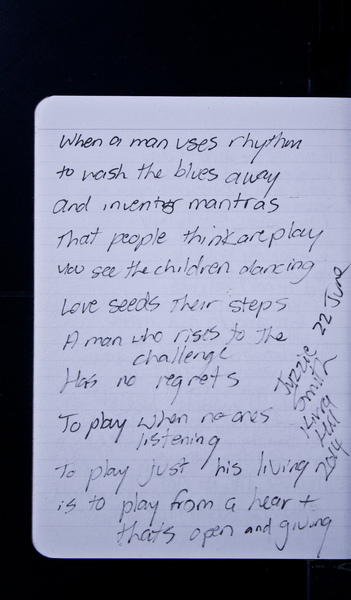 When a man uses rhythm
to wash the blues away
and invents mantras
That people think are play
you see the children dancing
Love seeds Their steps
A man who rises to The
challenge
Has no regrets
To play when no ones
listening
To play just his living
is to play from a heart
thats open and giving
Juzzie
Smith
22 June
2014